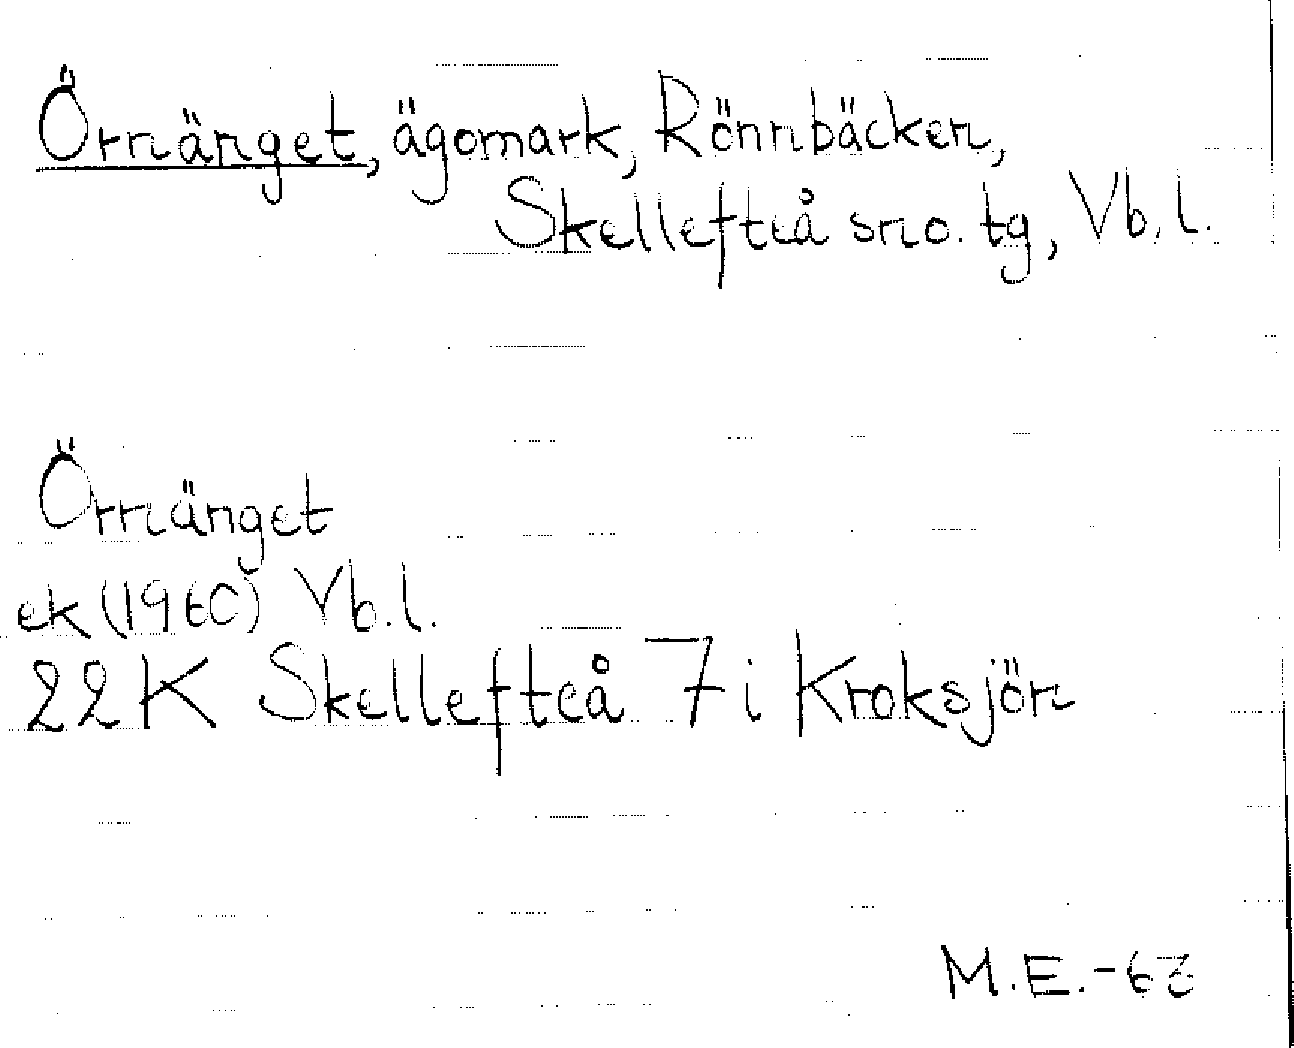 Örnänget, ägomark, Rönnbäcken,
Skellefteå sno. tg, Vb. l.
Örnänget
ek (1960) Vb. l.
22K Skellefteå 7i Kroksjön
M.E.-63